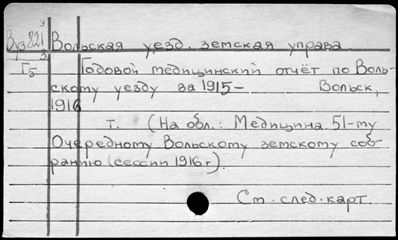 Вуз821
3
Вольская уезд. земская управа.
Гб Годовой медицинский отчёт по Воль-
скому уезду за 1915- Вольск,
1916
т. (На обл.: Медицина. 51-му
Очередному Вольскому земскому соб-
ранию (сессии 1916 г).
См. след. карт.